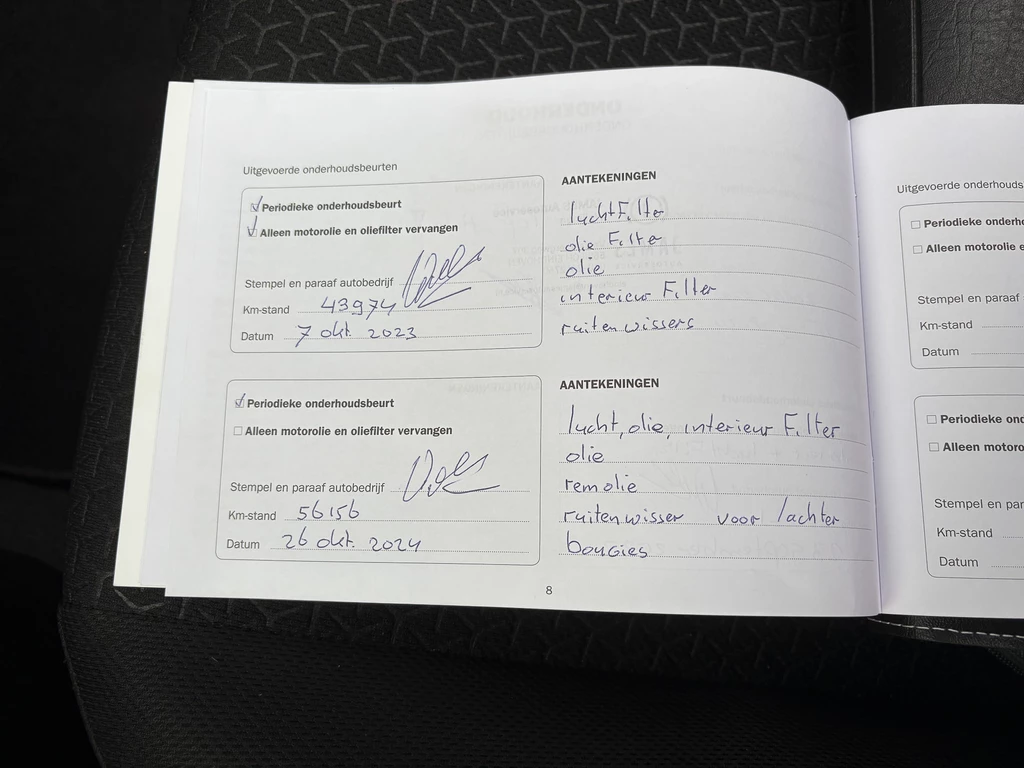 Uitgevoerde onderhoudsbeurten
Periodieke onderhoudsbeurt
Alleen motorolie en oliefilter vervangen
Stempel en paraaf autobedrijf
Km-stand 43974
Datum 7 okt. 2023
AANTEKENINGEN
luchtFilter
olie Filter
olie
interieur Filter
ruitenwissers
Periodieke onderhoudsbeurt
Alleen motorolie en oliefilter vervangen
Stempel en paraaf autobedrijf
Km-stand 56156
Datum 26 okt. 2024
AANTEKENINGEN
lucht, olie, interieur Filter
olie
remolie
ruitenwisser voor /achter
bougies
8
Uitgevoerde onderhouds
Periodieke onderho
Alleen motorolie e
Stempel en paraaf
Km-stand
Datum
Periodieke ond
Alleen motoro
Stempel en par
Km-stand
Datum